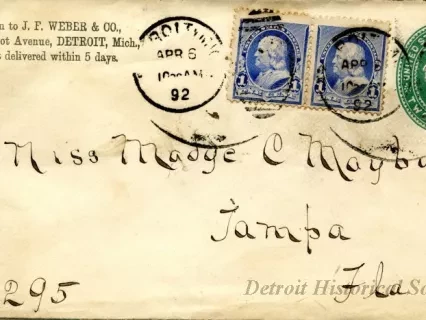 n to J. F. WEBER & CO.,
ot Avenue, DETROIT, Mich.,
s delivered within 5 days.
DETROIT, MICH.
APR 6
92
1 1
APR
92
UNITED
Miss Madge C Mayb
Tampa
Fla
295
Detroit Historical So